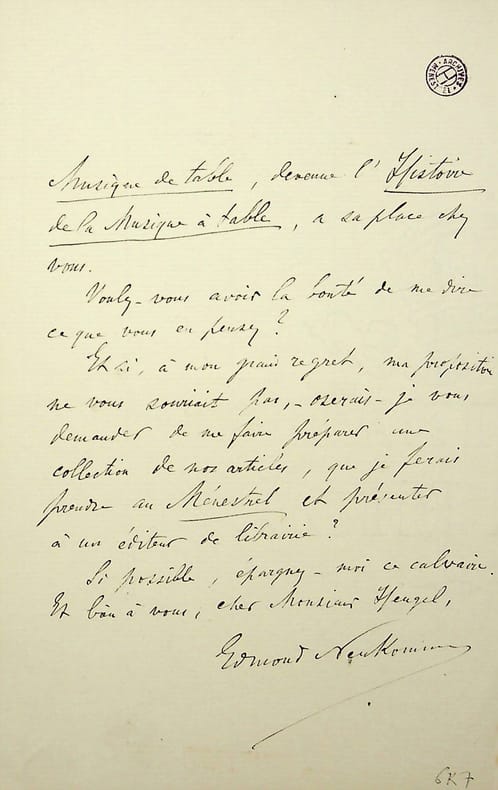 Musique de table, devenue l'Histoire
de la Musique à table, a sa place chez
vous.
Voulez-vous avoir la bonté de me dire
ce que vous en pensez ?
Et si, à mon grand regret, ma proposition
ne vous souriait pas, - oserais-je vous
demander de me faire préparer une
collection de nos articles, que je ferais
prendre au Ménestrel et présenter
à un éditeur de librairie ?
Si possible, épargnez-moi ce calvaire.
Et bien à vous, cher Monsieur Heugel,
Edmond Neukomm
ARCHIVES
6K7